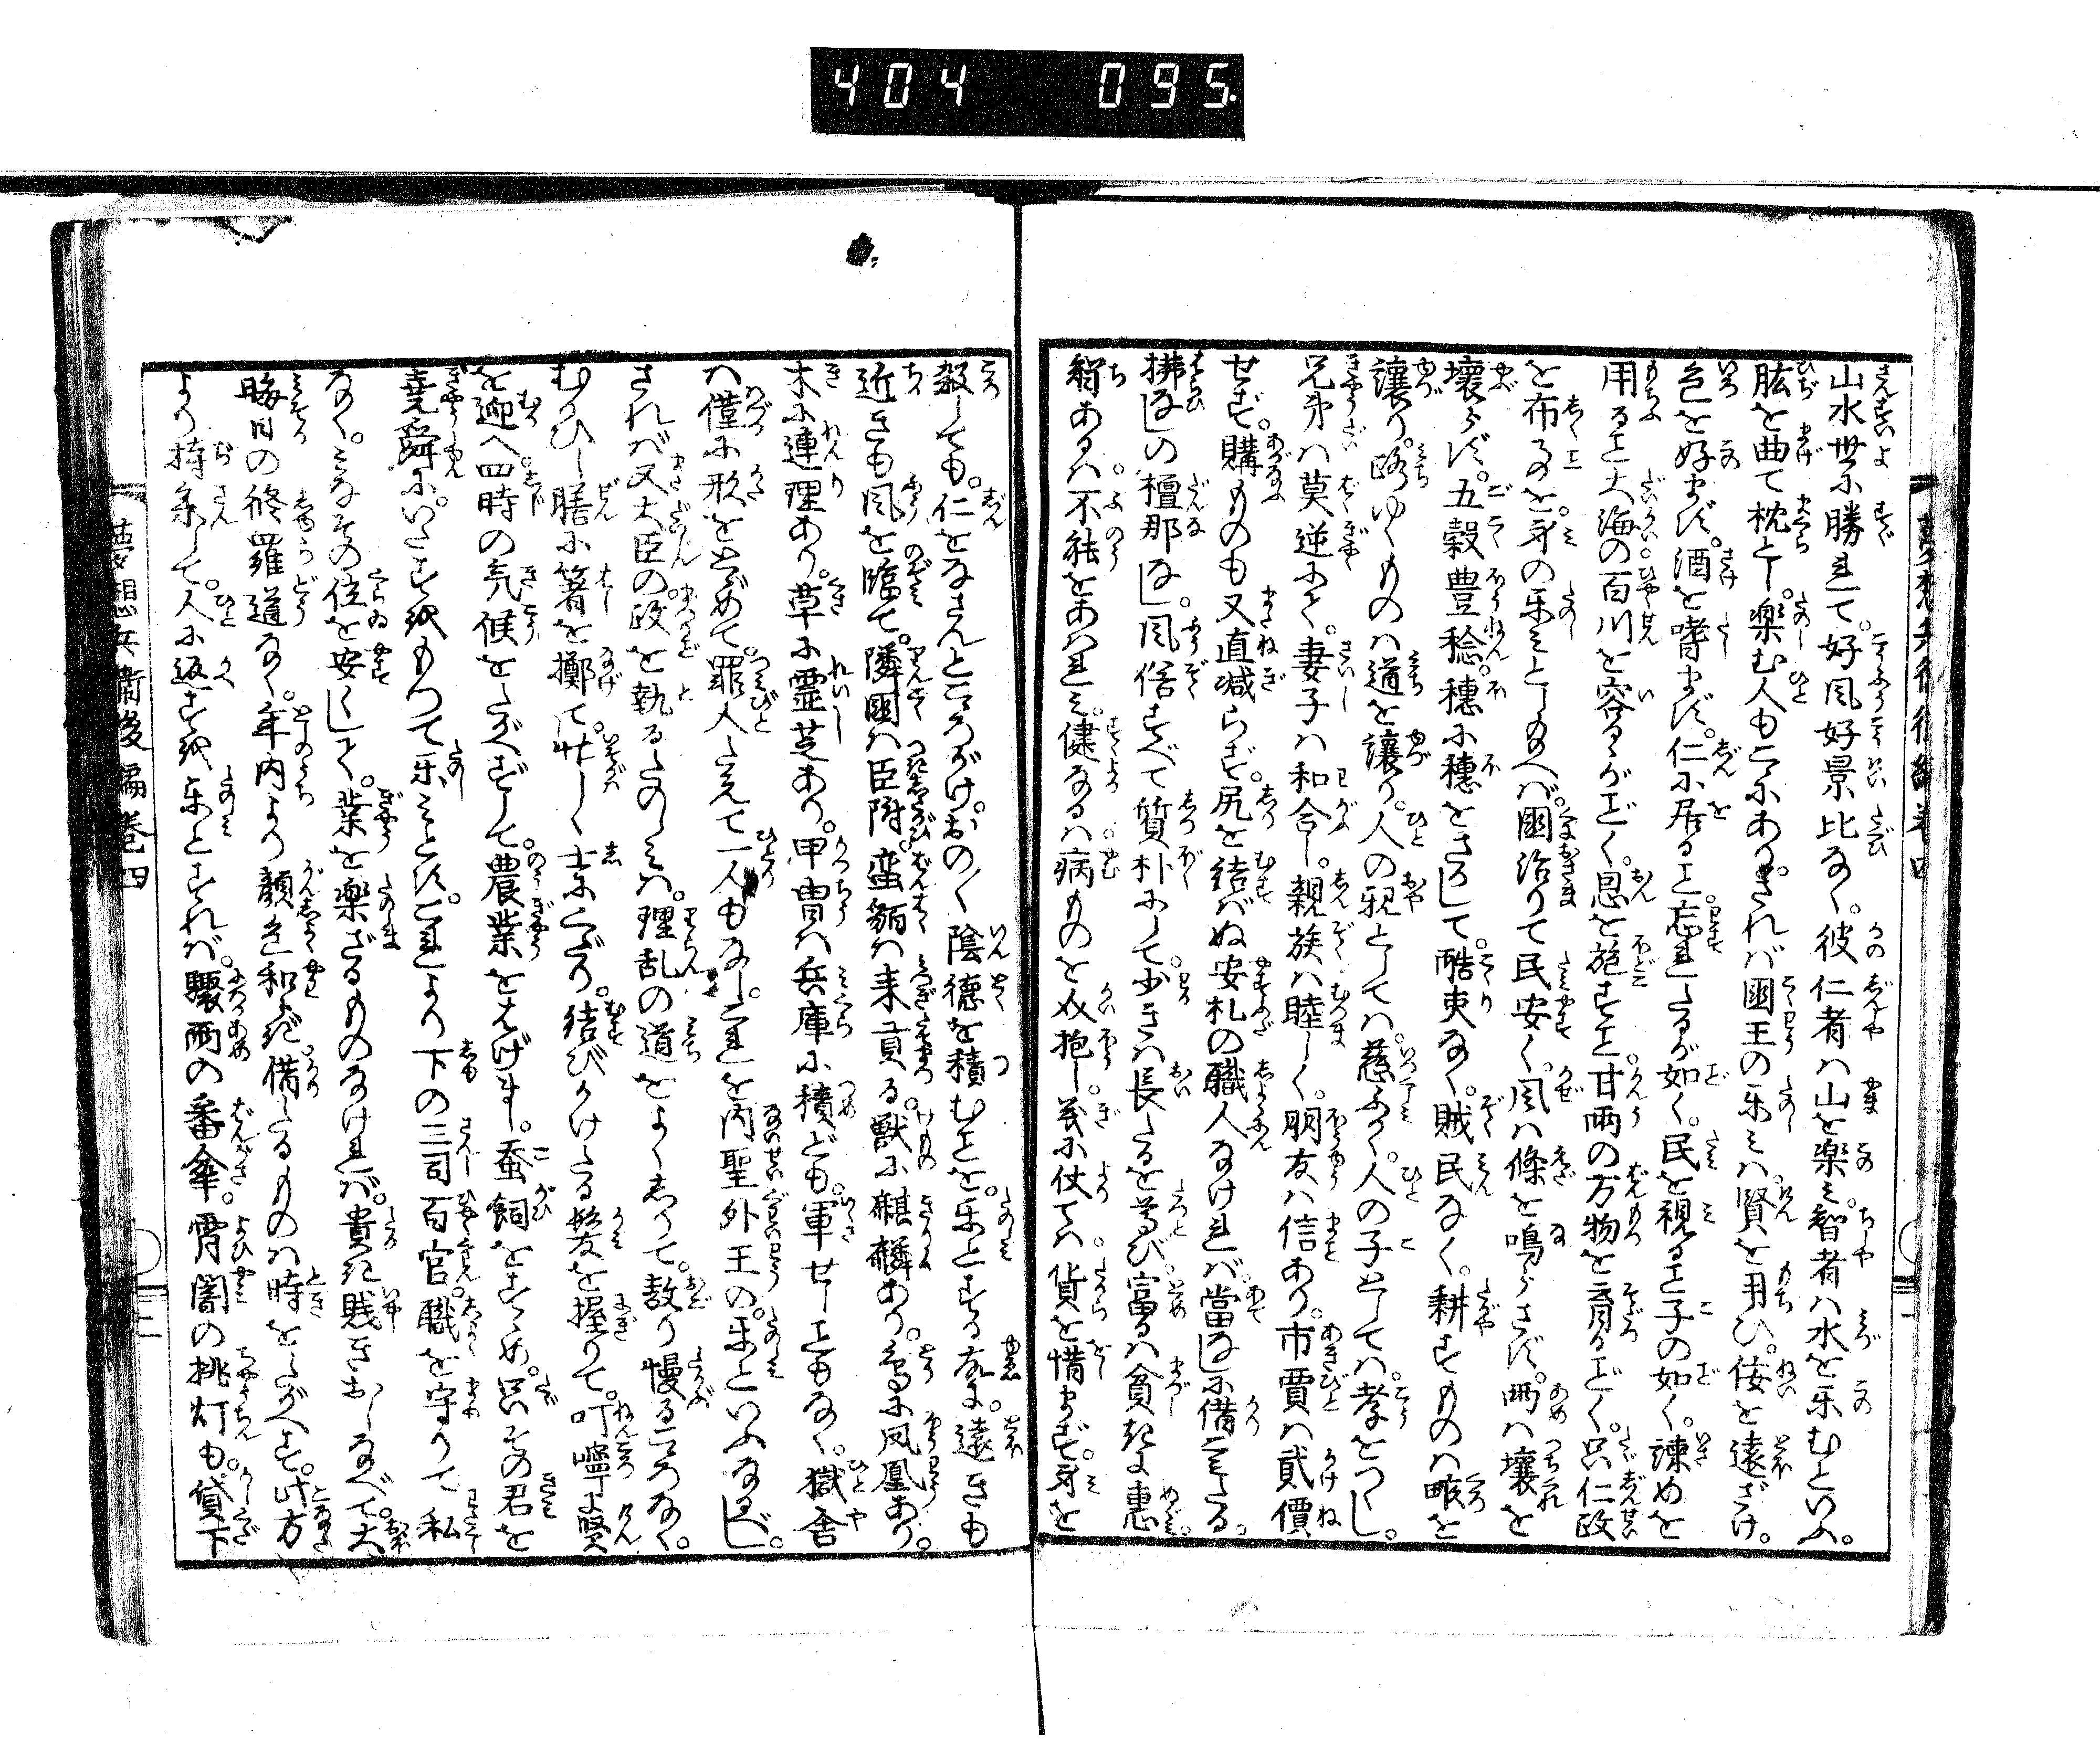 404 095.
山水世に勝れて。好風好景比なく。彼仁者は山を楽み。智者は水を楽むといふ。
肱を曲て枕とし。楽む人もこゝにあり。されば国王の楽みは。賢を用ひ。佞を遠ざけ。
色を好まず。酒を嗜まず。仁に居ること。忘れたるが如く。民を視ること子の如く。諫めを
用ること大海の百川を容るゝがごとく。恩を施すこと。甘雨の万物を育るごとく。只仁政
を布るのを。身の楽みとし給へば。国治りて民安く。風は條を鳴らさず。雨は壌を
壊らず。五穀豊稔。穂に穂をさかして。酷吏なく。賊民なく。耕すものは畔を
譲り。路ゆくものは道を譲り。人の親としては。慈ふかく。人の子としては。孝をつくし。
兄弟は莫逆にて。妻子は和合し。親族は睦しく。朋友は信あり。市賈は貳價
せず。購ものも又直減らず。尻を結ばぬ安札の職人なければ。當なしに借こみたる。
拂なしの檀那なし。風俗すべて質朴にして。少きは長たるを尊び。富るは貧きに惠
智あるは不能をあはれみ。健なるは病ものを介抱し。義に仗ては貨を惜まず。身を
殺しても。仁をなさんとこゝろがけ。おの〱陰徳を積むことを。楽とする故に。遠きも
近きも風を臨て。隣国は臣附。蛮貊は来貢る。獣に麒麟あり。鳥に凤凰あり。
木に連理あり。草に霊芝あり。甲冑は兵庫に積ども。軍せしこともなく。獄舎
は僅に形をとゞめて。罪人たえて一人もなし。これを内聖外王の。楽といふなるべし。
されば又大臣の。政を執るたのしみは。理乱の道をよくしりて。敖り慢るこゝろなく。
むかひし膳に箸を擲て。忙しく士にくだり。結びかけたる髪を握りて。叮嚀に賢
を迎へ。四時の気候をたがへずして。農業をはげまし。蚕飼をすゝめ。只その君を
堯舜に。いたすをもつて楽みとす。これより下の三司百官。職を守りて私
なく。みなその位を安くして。業を楽ざるものなければ。貴き賤きおしなべて。大
晦日の修羅道なく。年内より顔色和らぎ。借たるものは時をたがへず。此方
より持参して。人に返すを楽とすれば。驟雨の番傘。宵闇の挑灯も。貸下
夢想兵衛後編巻四